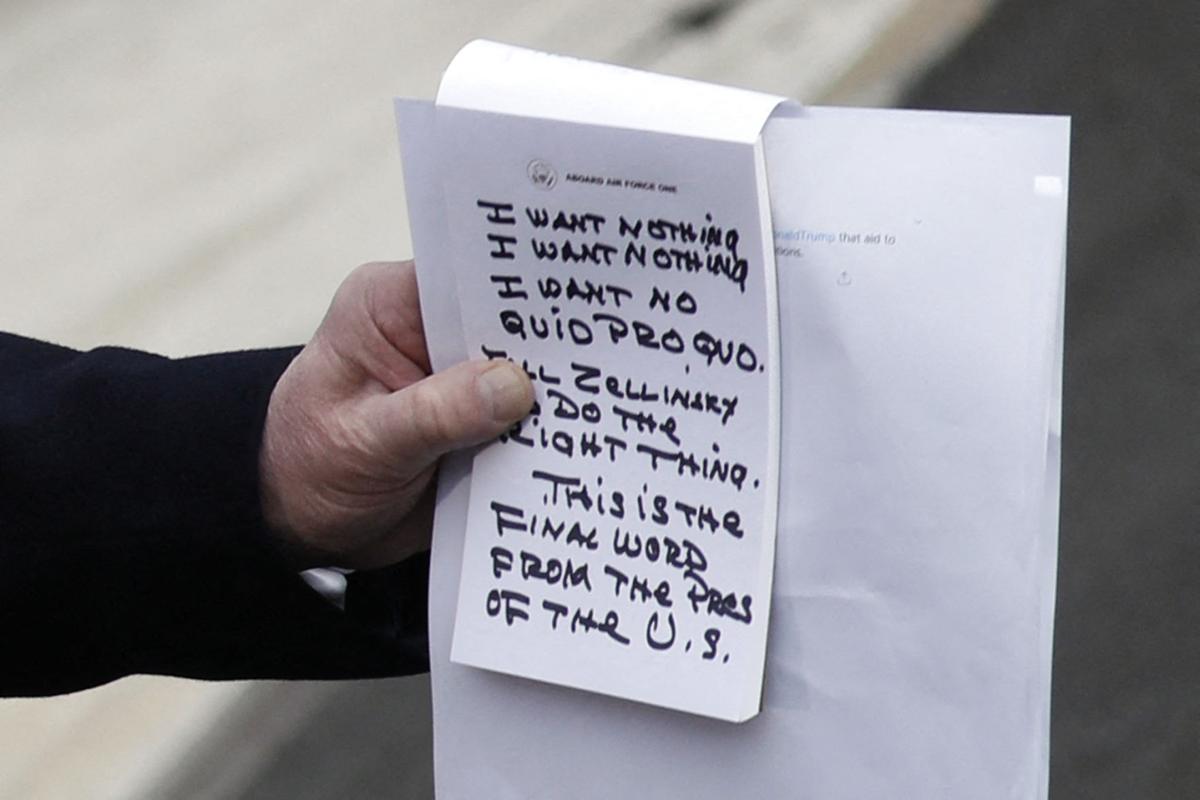 ABOARD AIR FORCE ONE
I WANT NOTHING
I WANT NOTHING
I WANT NO
QUID PRO QUO.
ZELLINSKY
DO THE
RIGHT THING.
THIS IS THE
FINAL WORD
FROM THE PRES
OF THE U.S.
naldTrump that aid to
tions.